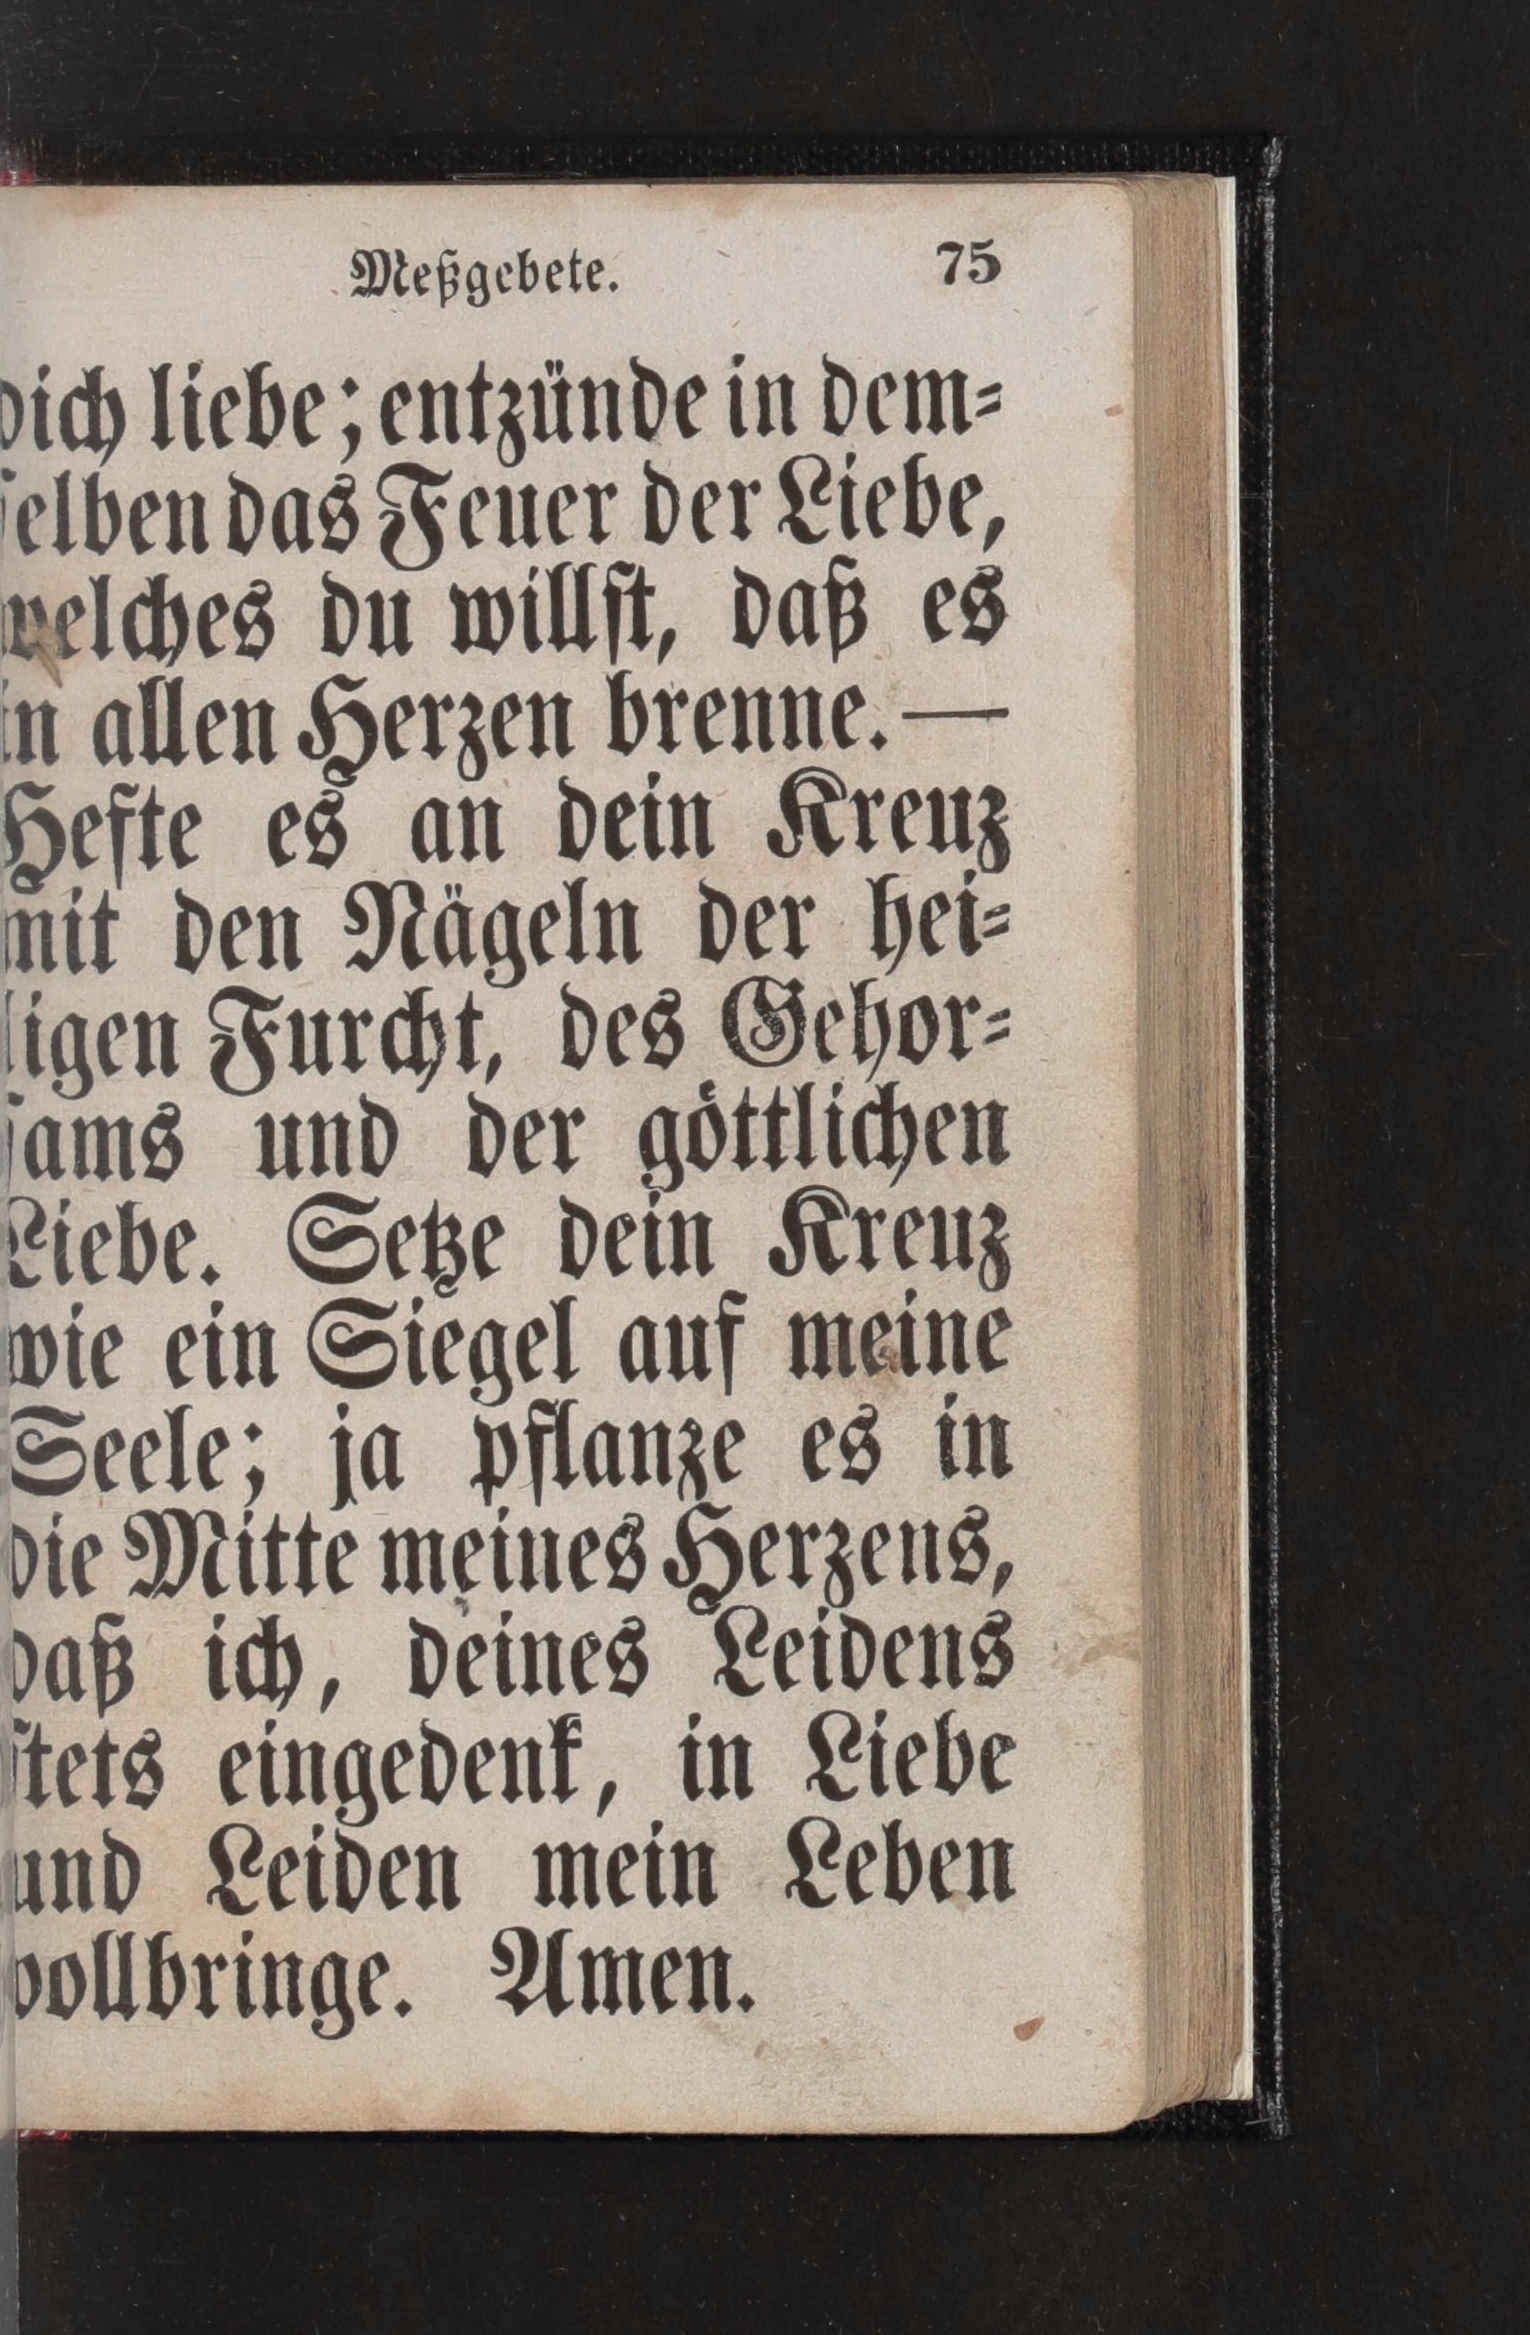 Meßgebete. 75
dich liebe; entzünde in dem-
selben das Feuer der Liebe,
welches du willst, daß es
in allen Herzen brenne. —
Hefte es an dein Kreuz
mit den Nägeln der hei-
ligen Furcht, des Gehor-
sams und der göttlichen
Liebe. Setze dein Kreuz
wie ein Siegel auf meine
Seele; ja pflanze es in
die Mitte meines Herzens,
daß ich, deines Leidens
stets eingedenk, in Liebe
und Leiden mein Leben
vollbringe. Amen.